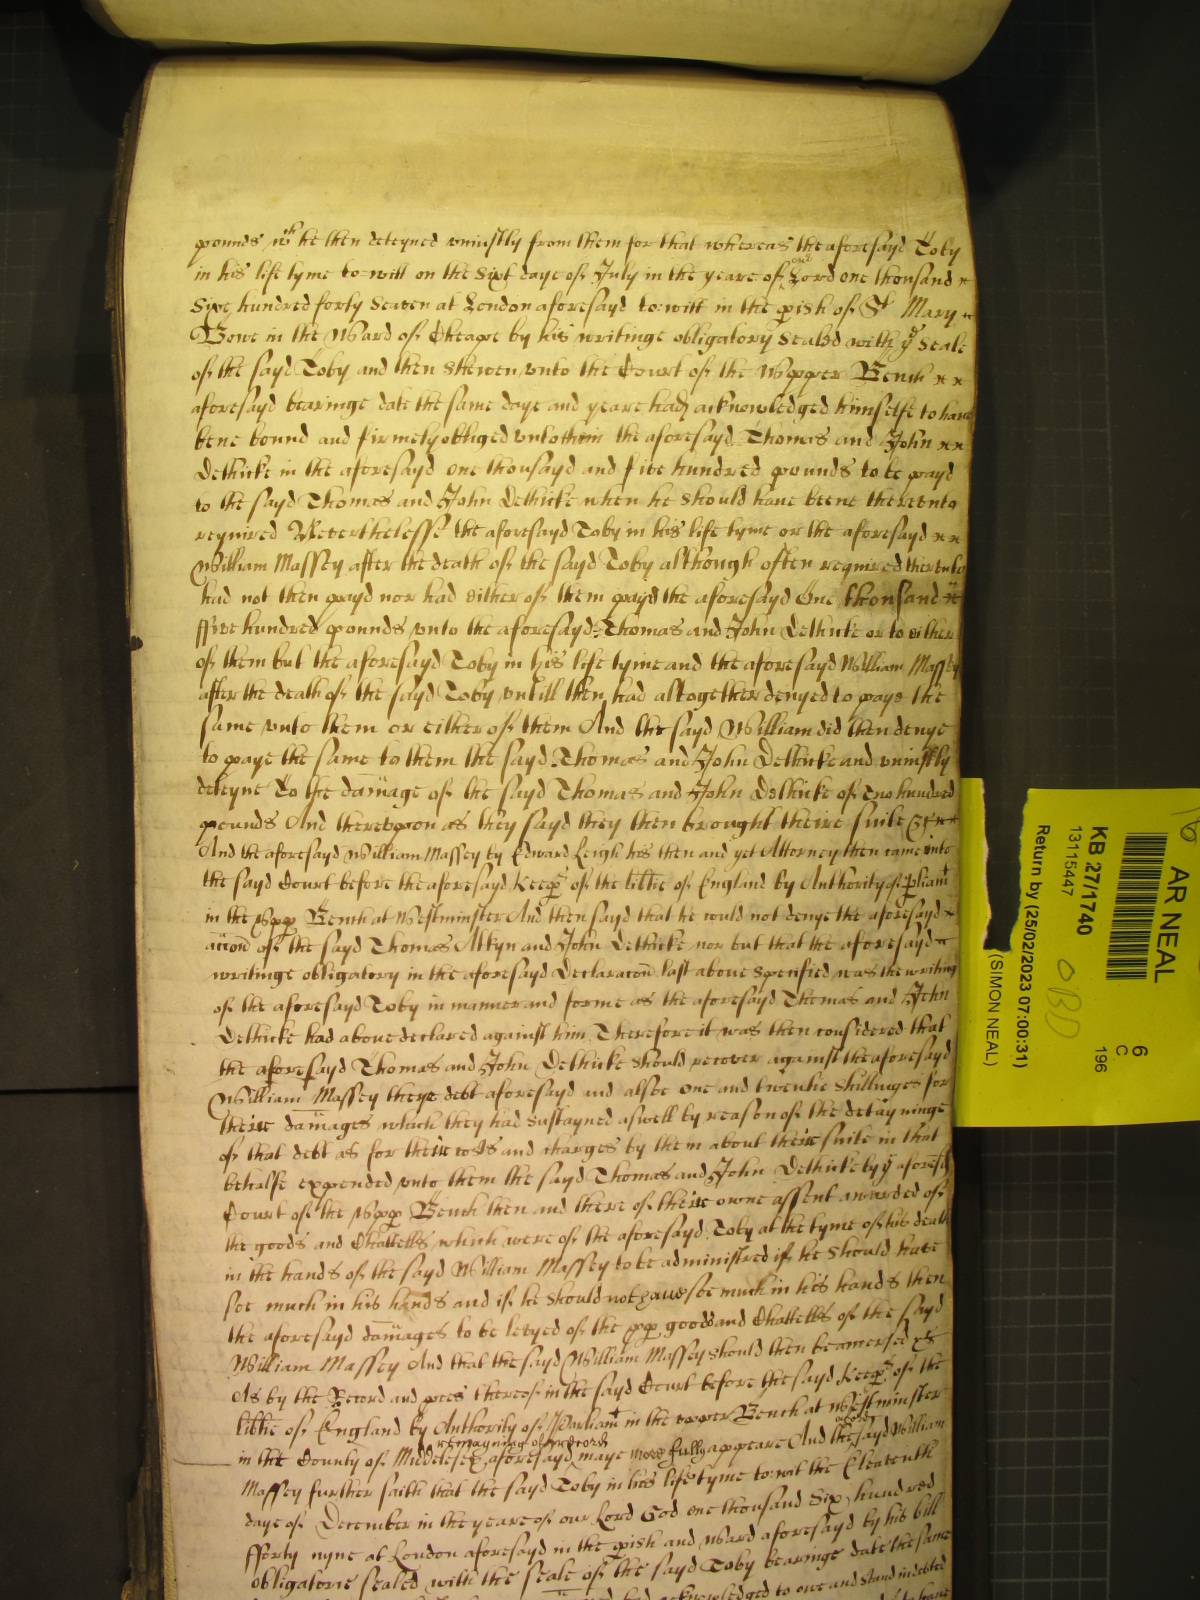 pounds wch he then deteyned uniustly from them for that whereas the aforesayd Toby
in his life tyme to witt on the Sixt daye of July in the yeare of our Lord one thousand
Sixe hundred forty Seaven at London aforesayd to witt in the pish of St Mary
Bowe in the Ward of Cheape by his writinge obligatory Sealed with ye Seale
of the sayd Toby and then Shewen unto the Court of the Upper Bench
aforesayd bearinge date the same daye and yeare had acknowledged himselfe to have
bene bound and firmely obliged unto them the aforesayd Thomas and John
Dethicke in the aforesayd one thousayd and five hundred pounds to be payd
to the sayd Thomas and John Dethicke when he should have beene thereunto
required Neverthelesse the aforesayd Toby in his life tyme or the aforesayd
William Massey after the death of the sayd Toby although often required thereunto
had not then payd nor had either of them payd the aforesayd One thousand
ffive hundred pounds unto the aforesayd Thomas and John Dethicke or to either
of them but the aforesayd Toby in his life tyme and the aforesayd William Massey
after the death of the sayd Toby untill then had altogether denyed to paye the
same unto them or either of them And the sayd William did then denye
to paye the same to them the sayd Thomas and John Dethicke and uniustly
deteyne To the damage of the sayd Thomas and John Dethicke of Two hundred
pounds And thereupon as they sayd they then brought theire suite &c
And the aforesayd William Massey by Edward Leigh his then and yet Attorney then came into
the sayd Court before the aforesayd Keepers of the libtie of England by Authority of pliamt
in the Upp Bench at Westminster And then sayd that he could not denye the aforesayd
accon of the sayd Thomas Alkyn and John Dethicke nor but that the aforesayd
writinge obligatory in the aforesayd Declaracon last above specified was the writing
of the aforesayd Toby in manner and forme as the aforesayd Thomas and John
Dethicke had above declared against him Therefore it was then considered that
the aforesayd Thomas and John Dethicke should recover against the aforesayd
William Massey theyre debt aforesayd and alsoe one and twentie Shillinges for
theire damages which they had sustayned aswell by reason of the detayninge
of that debt as for theire costs and charges by them about theire suite in that
behalfe expended unto them the sayd Thomas and John Dethicke by ye aforesd
Court of the Upp Bench then and there of theire owne assent awarded of
the goods and Chattells which were of the aforesayd Toby at the tyme of his death
in the hands of the sayd William Massey to be administred if he should have
soe much in his hands and if he should not have soe much in his hands then
the aforesayd damages to be levyed of the pp goods and Chattells of the sayd
William Massey And that the sayd William Massey should then be amersed &c
As by the Record and pces thereof in the sayd Court before the sayd Keeps of the
libtie of England by Authority of Parliamt in the upper Bench at Westminster
in the County of Middlesex aforesayd remayning of record maye more fully appeare And the sayd William
Massey further saith that the sayd Toby in his life tyme to wit the Eleaventh
daye of December in the yeare of our Lord God one thousand Six hundred
fforty nyne at London aforesayd in the pish and Ward aforesayd by his bill
obligatorie sealed with the seale of the sayd Toby bearinge date the same
acknowledged to owe and stand indebted
AR NEAL
6
C
196
KB 27/1740
13115447
OBD
Return by (25/02/2023 07:00:31)
(SIMON NEAL)